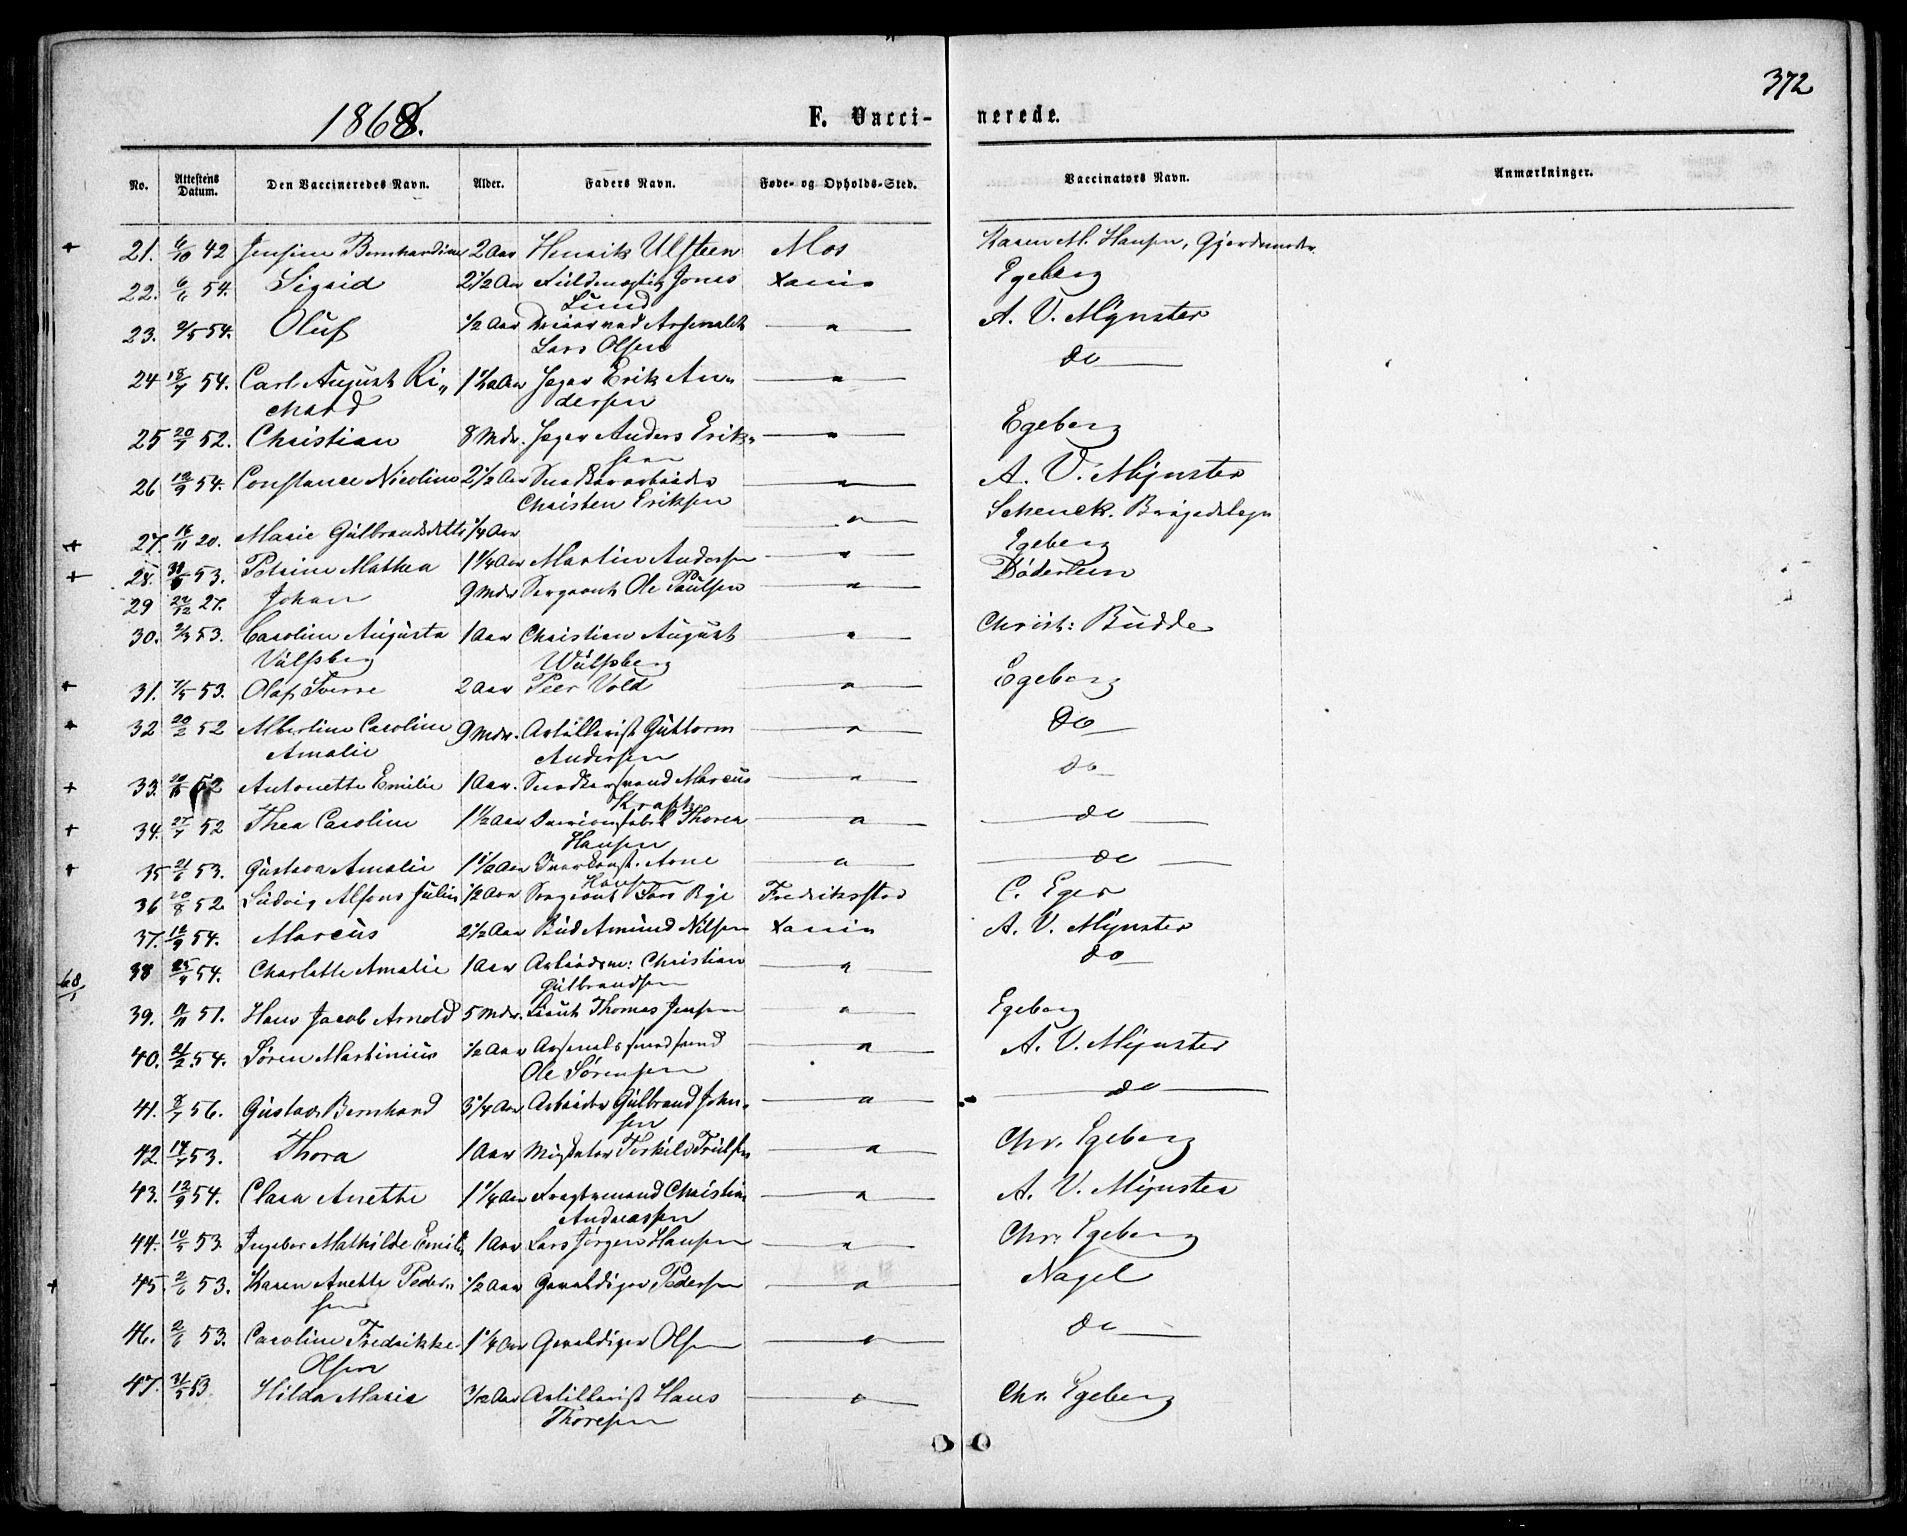 372
1868.
F. Vacci- nerede.
No. Attestens Datum. Den Vaccineredes Navn. Alder. Faders Navn. Føde- og Opholds-Sted. Vaccinators Navn. Anmærkninger.
+ 21. 6/10 42 Jensine Bernhardine 2 Aar Henrik Ulsteen Mos Karen M. Hansen, Gjordemoder
22. 6/6 54. Sigrid 2 1/2 Aar Fuldmægtig Jonas Xania Egeberg
Lund
23. 54. Oluf 1/2 Aar ved Arsenalet " A. V. Mynster
Lars Olsen
24 18/7 54. Carl August Ri- 1 1/2 Aar Jæger Erik An- " do
chard dersen
25 20/7 52. Christian 8 Mdr. Jæger Anders Erik- " Egeberg
sen
26 12/9 54. Constance Nicoline 2 1/2 Aar Snedkerarbeider " A. V. Mynster
Christen Eriksen
+ 27. 16/11 20. Marie Gulbrandsdatter 1/4 Aar " Schenck. Brigadelæge
+ 28. 53. Petrine Mathea 1 1/4 Aar Martin Andersen " Egeberg
29 22/12 27. Johan 9 Mdr Sergeant Ole Paulsen " Döderlein
30. 2/3 53. Caroline Augusta 1 Aar Christian August " Christ: Budde
Vulfsberg Wulfsberg
+ 31. 7/5 53. Olaf Sverre 2 Aar Peer Vold " Egeberg
+ 32 20/2 52 Albertine Caroline 9 Mdr. Artillerist Guttorm " do
Amalie Andersen
+ 33. 52 Antonette Emilie 1 Aar. Snedkersvend Marcus " do
Kraft
+ 34. 27/7 52 Thea Caroline 1 1/2 Aar Thoren " do
Hansen
+ 35 21/6 53. Gustava Amalie 1 1/2 Aar Overkonst. Arne " do
Hansen
36 20/8 52 Ludvig Alfons Julius 1/2 Aar Sergeant Lars Rye Fredriksstad C. Eger
37. 12/9 54. Marcus 2 1/2 Aar Bud Amund Nilsen Xania A. V. Mynster
68/1 38 25/9 54. Charlotte Amalie 1 Aar Arbeidsm: Christian " do
Gulbrandsen
39. 11/11 51. Hans Jacob Arnold 5 Mdr. Lieut Thomas Jensen " Egeberg
40. 21/2 54. Søren Martinius 1/2 Aar Arsenalssmedsvend " A. V. Mynster
Ole Sørensen
41. 8/7 56. Gustav Bernhard 3 1/4 Aar Arbeider Gulbrand John- " do
sen
42. 14/7 53. Thora 1 Aar Torkild Trulsen " Chr. Egeberg
43. 12/9 54. Clara Anette 1 1/4 Aar Fragtemand Christian " A. V. Mynster
Andreassen
44. 10/5 53. Ingeborg Mathilde Emilie 1 Aar Lars Jørgen Hansen " Chr. Egeberg
+ 45. 2/6 53. Karen Anette Peder- 1/2 Aar Gevaldiger Pedersen " Nagel
sen
46. 2/6 53. Caroline Fredrikke 1 1/4 Aar Gevaldiger Olsen " do
Olsen
47. 31/5 53 Hilda Marie 3/12 Aar Artillerist Hans " Chr. Egeberg
Thoresen